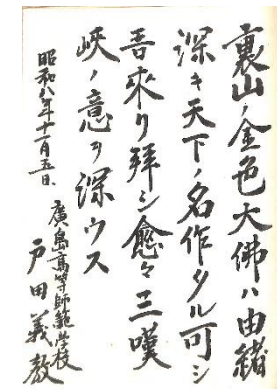 裏山ノ金色大佛ハ由緒
深キ天下ノ名作タル可シ
吾來リ拜シ愈々三嘆
峽ノ意ヲ深ウス
昭和八年十一月五日
廣島高等師範学校
戸田義教